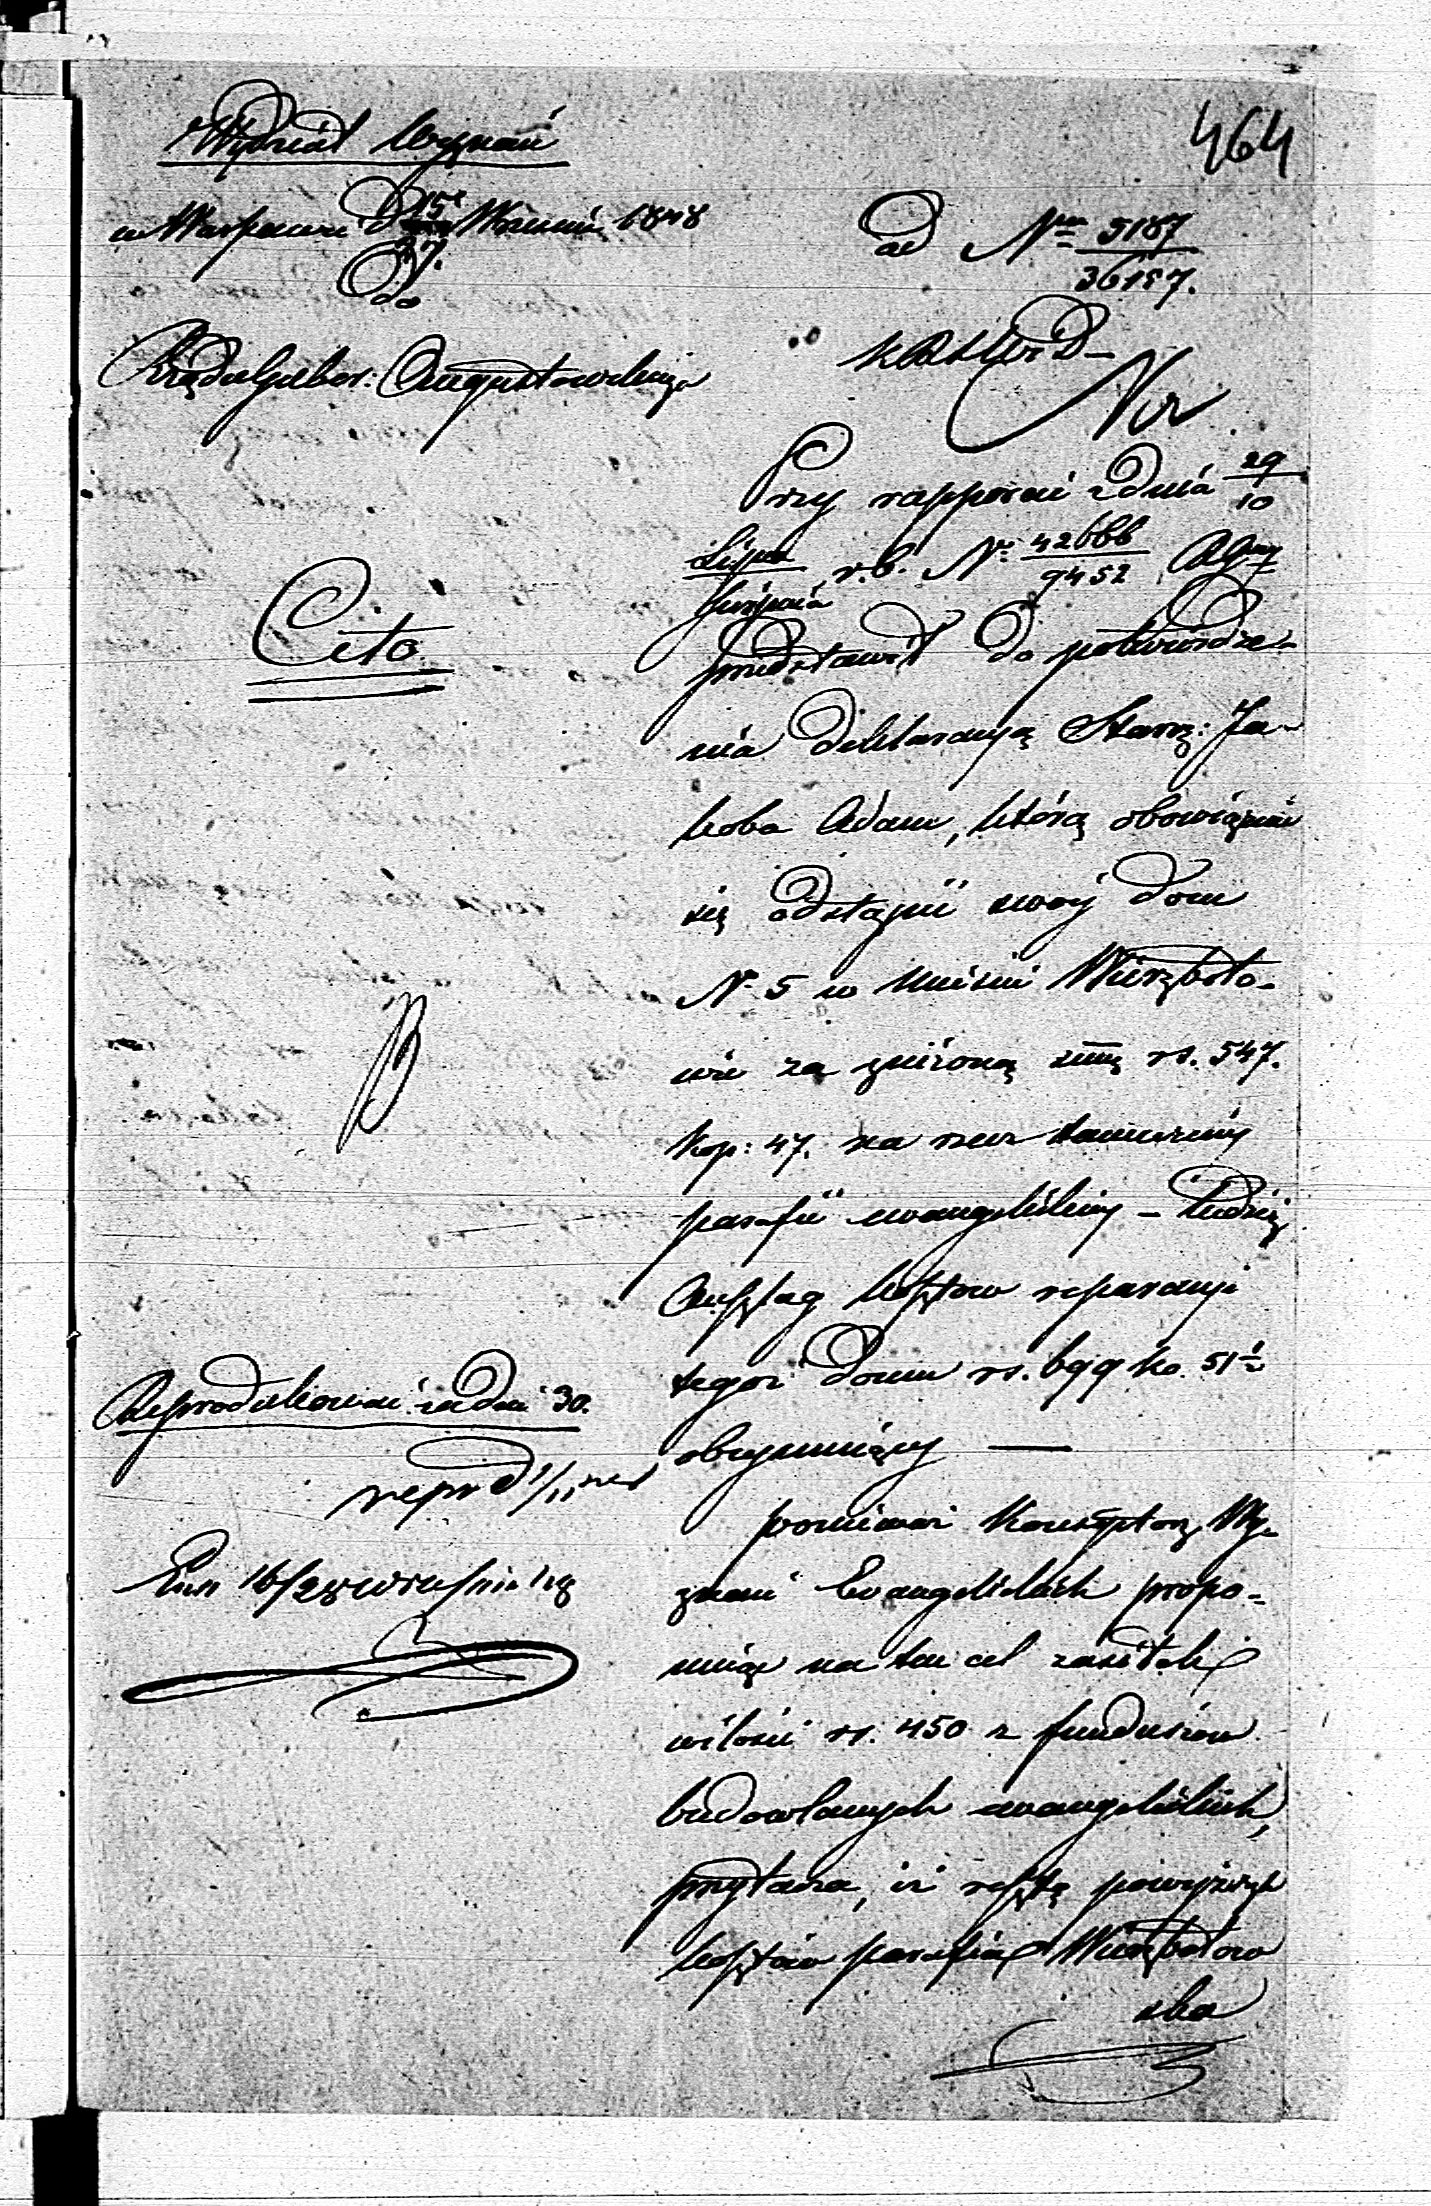 464
Wydział Wyznań
w Warszawie d 15/27 Września 1848
Do
Rządu Guber: Augustowskiego
ad Nrm 5187/36157.
Nr
Cito
Przy rapporcie z dnia 29/10
Lipca/Sierpnia r.b. Nr 42666/9452
przedstawił do potwierdze-
nia deklaracyą Starz: Ja-
koba Adam, którą obowiązuie
się odstąpić swóy dom
Nr 5 w mieście Wierzboło-
wie za zniżoną summę rs. 547.
kop: 47. na rzecz tamecznéy
parafii ewangelickiéy – tudzież
Anszlag kosztów reparacyi
tegoż domu rs. 699 ko. 51½
obeymuiący —
ponieważ Konsystorz Wy-
znań Ewangelickich propo-
nuiąc na ten cel zasiłek
w ilości rs. 450 z funduszów
budowlanych ewangelickich,
przytacza, iż resztę powyższych
kosztów parafia Wierzbołow
ska
Reprodukować za dni 30.
reprod
16/28 września 48